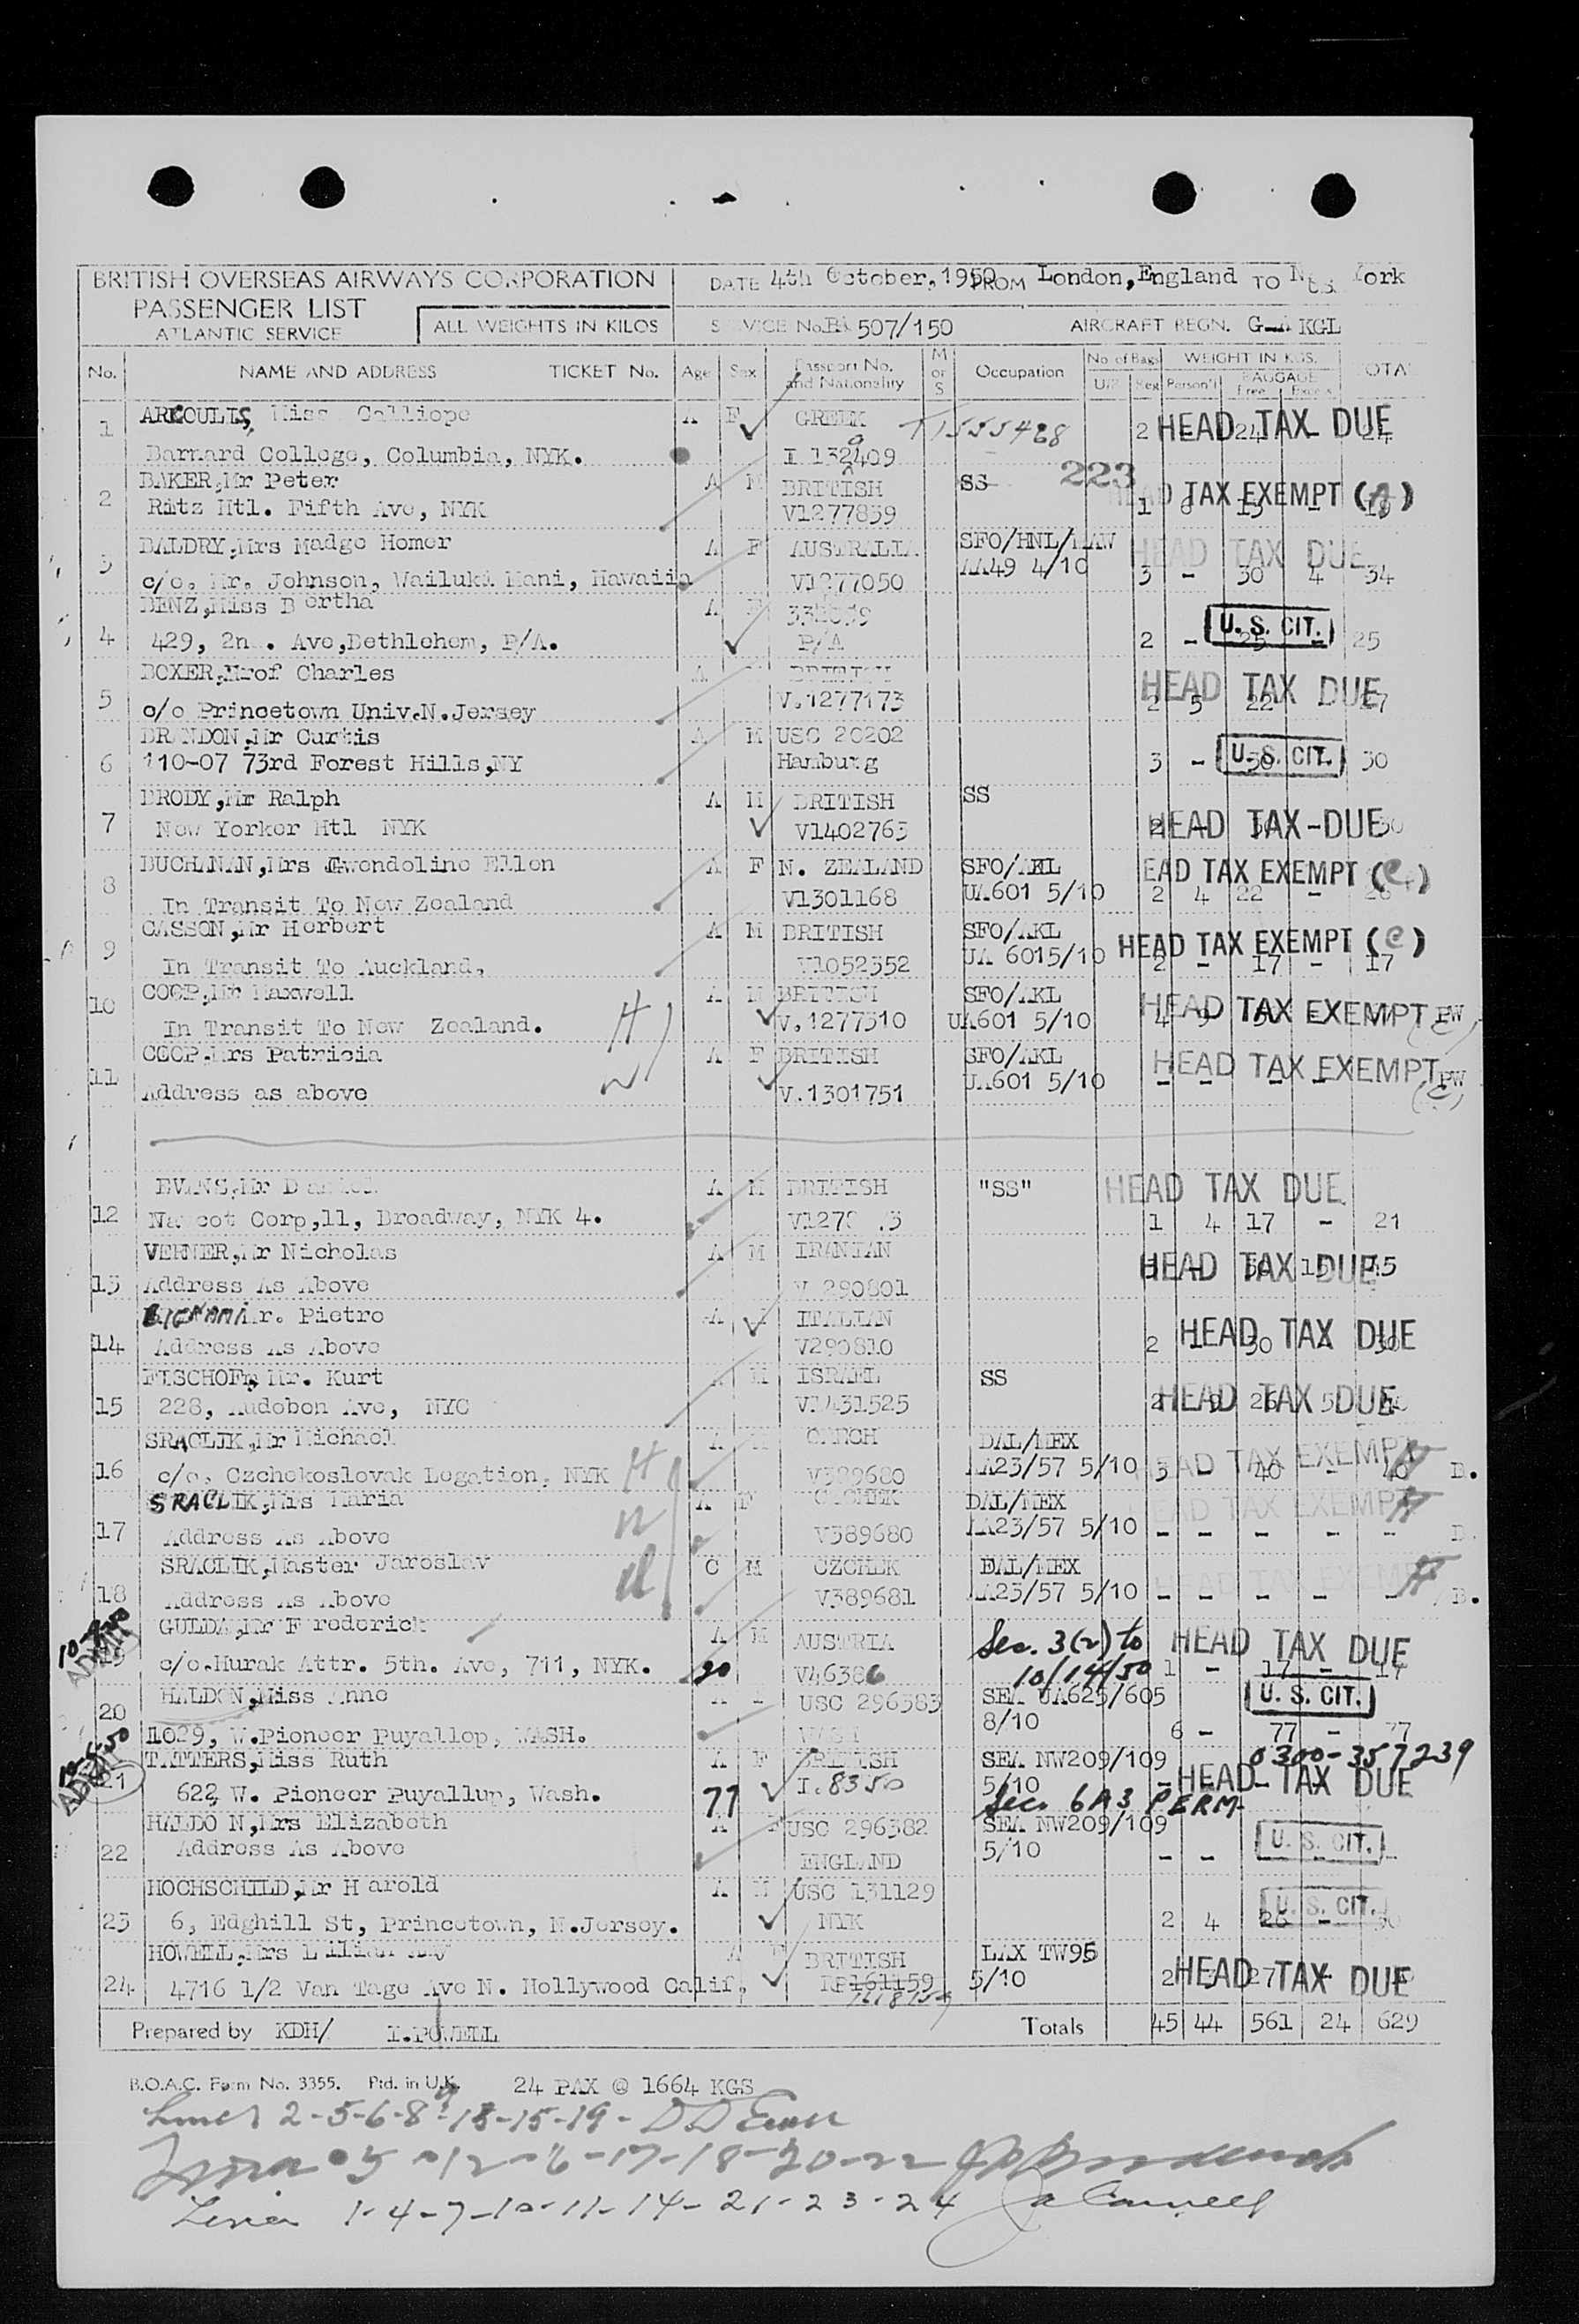 BRITISH OVERSEAS AIRWAYS CORPORATION
PASSENGER LIST
ATLANTIC SERVICE
ALL WEIGHTS IN KILOS
DATE 4th October, 1950 FROM London, England TO York
SERVICE No. BA 507/150 AIRCRAFT REGN. G-A KGL
No. NAME AND ADDRESS TICKET No. Age Sex Passport No. and Nationality M or S Occupation No of Bags U/R Reg WEIGHT IN KGS. Person'l BAGGAGE Free Excess TOTAL
1 ARKOULIS, Miss Calliope A F GREEK 2 HEAD TAX DUE
Barnard College, Columbia, NYK. I 132409
2 BAKER, Mr Peter A M BRITISH SS 223 HEAD TAX EXEMPT (A)
Ritz Htl. Fifth Ave, NYK V1277839
3 BALDRY, Mrs Madge Homer A F AUSTRALIA SFO/HNL/HAW HEAD TAX DUE
c/o. Mr. Johnson, Wailuki Mani, Hawaiin V1277050 AA49 4/10 3 - 30 4 34
BENZ, Miss Bertha A
4 429, 2n . Ave, Bethlehem, P/A. P/A 2 - U. S. CIT. 25
BOXER, Mrof Charles A BRITISH HEAD TAX DUE
5 c/o Princetown Univ. N. Jersey V.1277173 2 5 22 - 27
BRANDON, Mr Curtis A M USC 20202
6 110-07 73rd Forest Hills, NY Hamburg 3 - U. S. CIT. 30
BRODY, Mr Ralph A M BRITISH SS
7 New Yorker Htl NYK V1402763 HEAD TAX DUE
BUCHANAN, Mrs Gwendoline Ellen A F N. ZEALAND SFO/AKL HEAD TAX EXEMPT (C)
8 In Transit To New Zealand V1301168 UA601 5/10 2 4 22 - 26
CASSON, Mr Herbert A M BRITISH SFO/AKL HEAD TAX EXEMPT (C)
9 In Transit To Auckland, V1052352 UA 6015/10 2 - 17 - 17
10 COOP, Mr Maxwell A M BRITISH SFO/AKL HEAD TAX EXEMPT PW (C)
In Transit To New Zealand. V.1277310 UA601 5/10
COOP, Mrs Patricia A F BRITISH SFO/AKL HEAD TAX EXEMPT PW (C)
11 Address as above V.1301751 UA601 5/10 - - - -
EVANS, Mr Daniel A M BRITISH "SS" HEAD TAX DUE
12 Corp, 11, Broadway, NYK 4. 1 4 17 - 21
VERNER, Mr Nicholas A M IRANIAN HEAD TAX DUE
13 Address As Above V 290801
Mr. Pietro A ITALIAN
14 Address As Above V290810 2 HEAD TAX DUE
FISCHOFF, Mr. Kurt M ISRAEL SS
15 228, Audobon Ave, NYC V1431525 HEAD TAX DUE
SRAOLIK, Mr Michael A CZECH DAL/MEX HEAD TAX EXEMPT
16 c/o. Czchekoslovak Legation, NYK V389680 AA23/57 5/10 3 - 40 - 40 B.
SRAOLIK, Mrs Maria A F CZCHEK DAL/MEX HEAD TAX EXEMPT
17 Address As Above V389680 AA23/57 5/10 - - - - - B.
SRAOLIK, Master Jaroslav C M CZCHEK DAL/MEX
18 Address As Above V389681 AA23/57 5/10 - - - - - B.
GULDA, Mr Frederick A M AUSTRIA Sec. 3(2) to HEAD TAX DUE
ADMIT 19 c/o. Hurak Attr. 5th. Ave, 711, NYK. 20 V46386 10/14/50 1 - 17 - 17
HALDON, Miss Anne USC 296383 SEA UA625/605 U. S. CIT.
20 1029, W. Pioneer Puyallop, WASH. 8/10 6 - 77 - 77
TATTERS, Miss Ruth A F BRITISH SEA NW209/109 0300-357239
ADMIT 21 622, W. Pioneer Puyallup, Wash. 77 I.8350 5/10 HEAD TAX DUE
Sec. 6A3 PERM-
HALDO N, Mrs Elizabeth A F USC 296382 SEA NW209/109
22 Address As Above ENGLAND 5/10 - - U. S. CIT.
HOCHSCHILD, Mr Harold A M USC 131129
23 6, Edghill St, Princetown, N. Jersey. NYK 2 4 26 - 30 U. S. CIT.
HOWELL, Mrs Lilian May A F BRITISH LAX TW95
24 4716 1/2 Van Tage Ave N. Hollywood Calif, 5/10 HEAD TAX DUE
Prepared by KDH/ I. POWELL Totals 45 44 561 24 629
B.O.A.C. Form No. 3355. Ptd. in U.K. 24 PAX @ 1664 KGS
Lines 2-5-6-8-9-13-15-19-
17-18-20-22
Lines 1-4-7-10-11-14-21-23-24